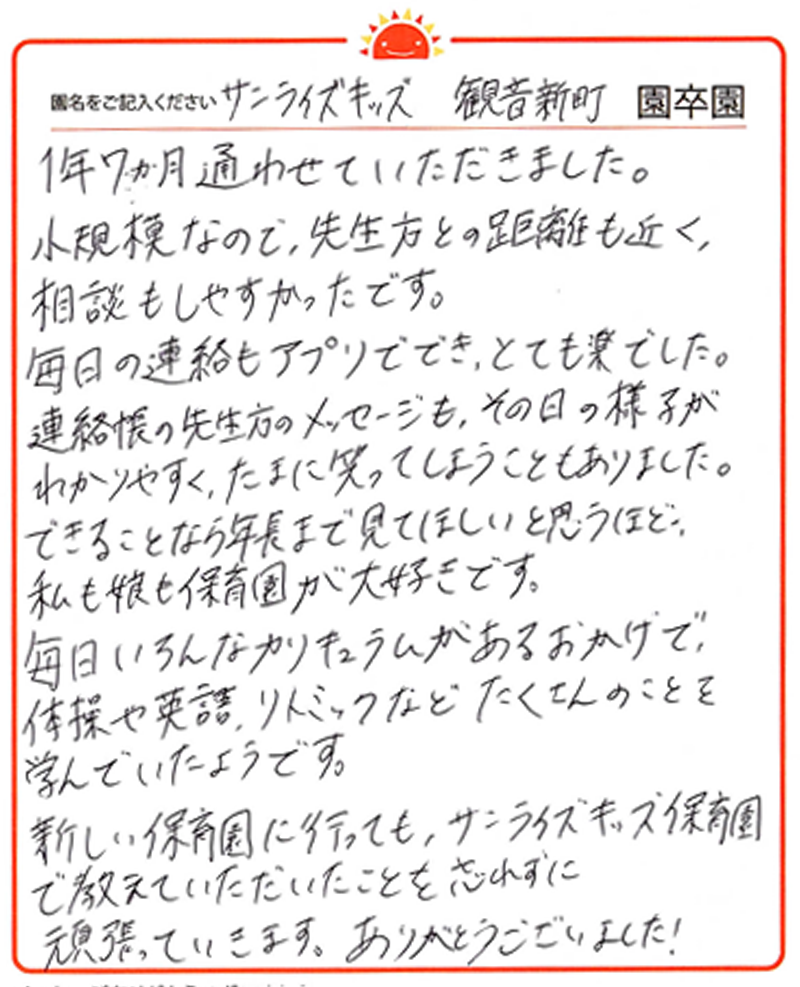 園名をご記入ください サンライズキッズ 観音新町 園卒園
1年7か月通わせていただきました。
小規模なので、先生方との距離も近く、
相談もしやすかったです。
毎日の連絡もアプリでき、とても楽でした。
連絡帳の先生方のメッセージも、その日の様子が
わかりやすく、たまに笑ってしまうこともありました。
できることなら年長まで見てほしいと思うほど、
私も娘も保育園が大好きです。
毎日いろんなカリキュラムがあるおかげで、
体操や英語、リトミックなど たくさんのことを
学んでいたようです。
新しい保育園に行っても、サンライズキッズ保育園
で教えていただいたことを忘れずに
頑張っていきます。ありがとうございました!